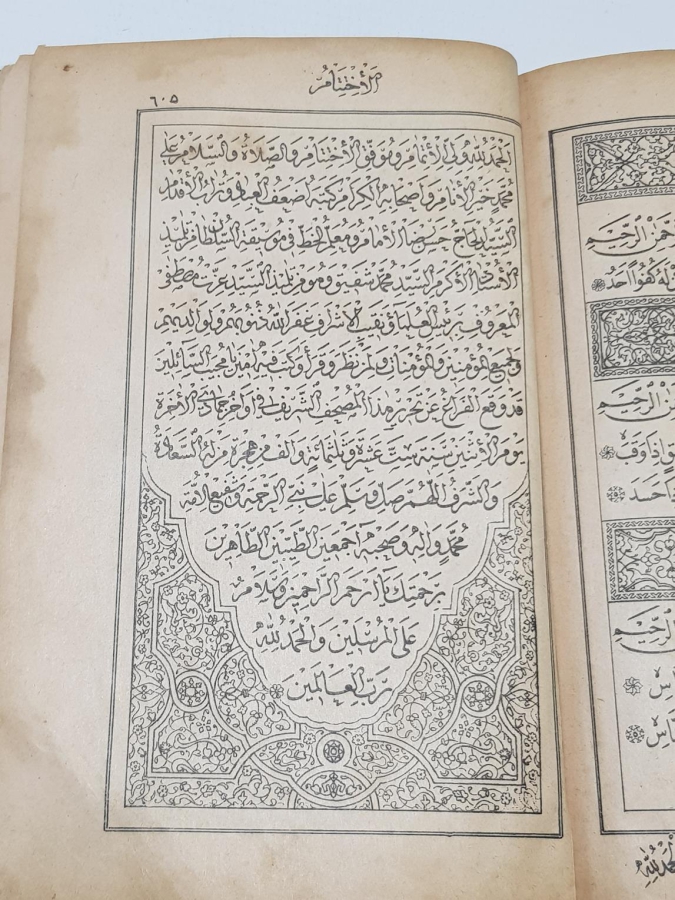 الاختتام
٦٠٥
الحمد لله ولي الانعام وموفق الاختتام والصلاة والسلام على
محمد خير الانام واصحابه الكرام كتبه اضعف العباد وتراب الاقدام
السيد الحاج حسن رضا الامام ومعلم الخط في موسيقة السلطان تلميذ
الاستاذ الاكرم السيد محمد شفيق وهو من تلاميذ السيد عزت مصطفى
المعروف برئيس العلماء ونقيب الاشراف غفر الله ذنوبهم ولوالديهم
ولجميع المؤمنين والمؤمنات ولمن نظر وقرأ وكتب فيه امين يا مجيب السائلين
قد وقع الفراغ عن تحرير هذا المصحف الشريف في اواخر جمادى الآخرة
يوم الاثنين سنة ست عشرة وثلثمائة والف من هجرة من له السعادة
والشرف اللهم صل وسلم على نبي الرحمة وشفيع الامة
محمد واله وصحبه اجمعين الطيبين الطاهرين
برحمتك يا ارحم الراحمين وسلام
على المرسلين والحمد لله
رب العالمين
الرحيم
كفوا احد
الرحيم
اذا وقب
حسد
الرحيم
الحمد لله